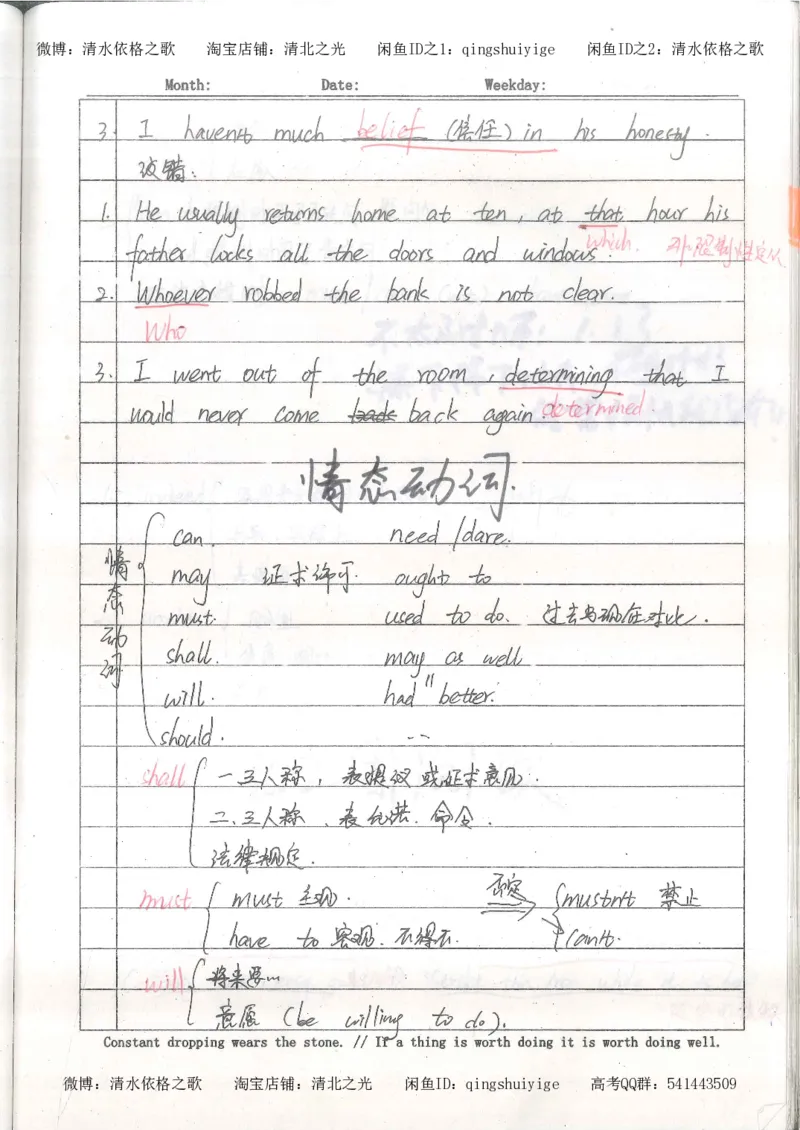 微博：清水依格之歌 淘宝店铺：清北之光 闲鱼ID之1：qingshuiyige 闲鱼ID之2：清水依格之歌
Month: Date: Weekday:
3. I haven't much belief (信任) in his honesty.
改错：
1. He usually returns home at ten, at that hour his
which. 非限制性定从
father locks all the doors and windows.
2. Whoever robbed the bank is not clear.
Who
3. I went out of the room, determining that I
would never come back again. determined.
情态动词.
情态动词
can. need / dare.
may 征求许可. ought to
must. used to do. 过去与现在对比.
shall. may as well
will. had better.
should. ...
shall 一三人称，表提议或征求意见.
二、三人称、表允诺.命令.
法律规定.
must must 主观. 否定 mustn't 禁止
have to 客观.不得不. can't.
will 将来要…
意愿 (be willing to do).
Constant dropping wears the stone. // If a thing is worth doing it is worth doing well.
微博：清水依格之歌 淘宝店铺：清北之光 闲鱼ID：qingshuiyige 高考QQ群：541443509